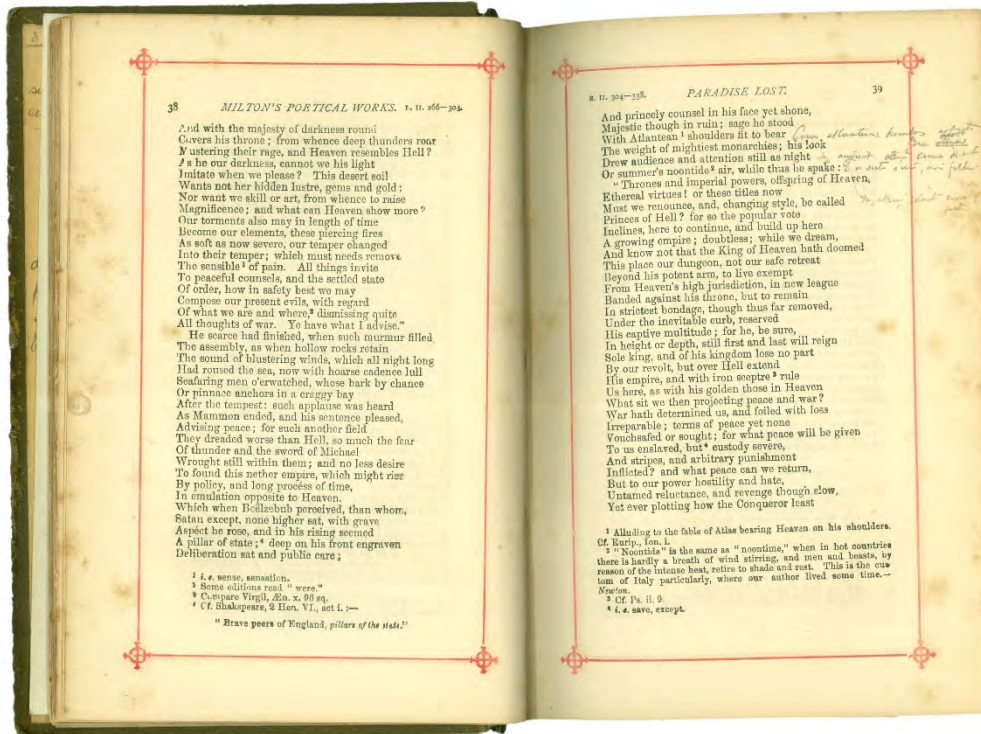 38 MILTON'S POETICAL WORKS. B. II. 266—303.
And with the majesty of darkness round
Covers his throne; from whence deep thunders roar
Mustering their rage, and Heaven resembles Hell?
As he our darkness, cannot we his light
Imitate when we please? This desert soil
Wants not her hidden lustre, gems and gold:
Nor want we skill or art, from whence to raise
Magnificence; and what can Heaven show more?
Our torments also may in length of time
Become our elements, these piercing fires
As soft as now severe, our temper changed
Into their temper; which must needs remove
The sensible¹ of pain. All things invite
To peaceful counsels, and the settled state
Of order, how in safety best we may
Compose our present evils, with regard
Of what we are and where,² dismissing quite
All thoughts of war. Ye have what I advise."
He scarce had finished, when such murmur filled
The assembly, as when hollow rocks retain
The sound of blustering winds, which all night long
Had roused the sea, now with hoarse cadence lull
Seafaring men o'erwatched, whose bark by chance
Or pinnace anchors in a craggy bay
After the tempest: such applause was heard
As Mammon ended, and his sentence pleased,
Advising peace; for such another field
They dreaded worse than Hell, so much the fear
Of thunder and the sword of Michael
Wrought still within them; and no less desire
To found this nether empire, which might rise
By policy, and long process of time,
In emulation opposite to Heaven.
Which when Beëlzebub perceived, than whom,
Satan except, none higher sat, with grave
Aspéct he rose, and in his rising seemed
A pillar of state;⁴ deep on his front engraven
Deliberation sat and public care;
¹ i. e. sense, sensation.
² Some editions read "were."
³ Compare Virgil, Æn. x. 96 sq.
⁴ Cf. Shakspeare, 2 Hen. VI., act i. :—
"Brave peers of England, pillars of the state."
B. II. 304—338. PARADISE LOST. 39
And princely counsel in his face yet shone,
Majestic though in ruin; sage he stood
With Atlantean¹ shoulders fit to bear
The weight of mightiest monarchies; his look
Drew audience and attention still as night
Or summer's noontide² air, while thus he spake:
"Thrones and imperial powers, offspring of Heaven,
Ethereal virtues! or these titles now
Must we renounce, and, changing style, be called
Princes of Hell? for so the popular vote
Inclines, here to continue, and build up here
A growing empire; doubtless; while we dream,
And know not that the King of Heaven hath doomed
This place our dungeon, not our safe retreat
Beyond his potent arm, to live exempt
From Heaven's high jurisdiction, in new league
Banded against his throne, but to remain
In strictest bondage, though thus far removed,
Under the inevitable curb, reserved
His captive multitude; for he, be sure,
In height or depth, still first and last will reign
Sole king, and of his kingdom lose no part
By our revolt, but over Hell extend
His empire, and with iron sceptre³ rule
Us here, as with his golden those in Heaven
What sit we then projecting peace and war?
War hath determined us, and foiled with loss
Irreparable; terms of peace yet none
Vouchsafed or sought; for what peace will be given
To us enslaved, but⁴ custody severe,
And stripes, and arbitrary punishment
Inflicted? and what peace can we return,
But to our power hostility and hate,
Untamed reluctance, and revenge though slow,
Yet ever plotting how the Conqueror least
¹ Alluding to the fable of Atlas bearing Heaven on his shoulders.
Cf. Eurip., Ion. i.
² "Noontide" is the same as "noontime," when in hot countries
there is hardly a breath of wind stirring, and men and beasts, by
reason of the intense heat, retire to shade and rest. This is the cus-
tom of Italy particularly, where our author lived some time.—
Newton.
³ Cf. Ps. ii. 9.
⁴ i. e. save, except.